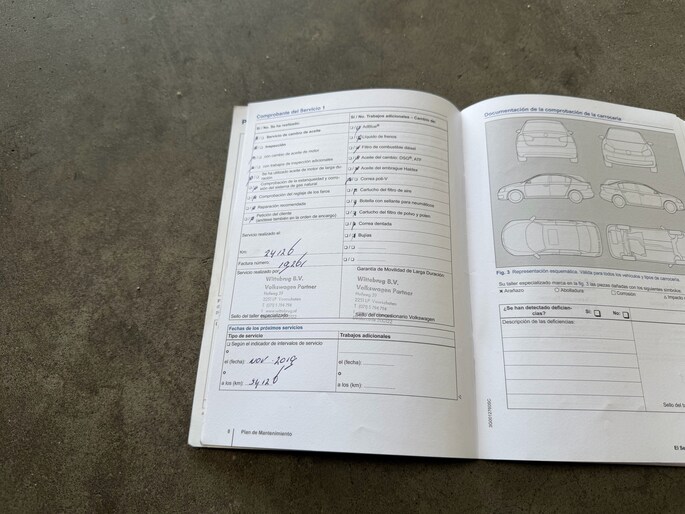 Comprobante del Servicio 1
Sí / No Se ha realizado:
Servicio de cambio de aceite
Inspección
con cambio de aceite de motor
con trabajos de inspección adicionales
Se ha utilizado aceite de motor de larga duración
Comprobación de la estanqueidad y sistema del sistema de gas natural
Comprobación del reglaje de los faros
Reparación recomendada
Petición del cliente
(anótese también en la orden de encargo)
Servicio realizado el:
Km: 24126
Factura número:
Servicio realizado por
Wittebrug B.V.
Volkswagen Partner
Sello del taller especializado
Sí / No Trabajos adicionales – Cambio de:
AdBlue®
Líquido de frenos
Filtro de combustible diésel
Aceite del cambio: DSG®, AXF
Aceite del embrague Haldex
Correa poli-V
Cartucho del filtro de aire
Botella con sellante para neumáticos
Cartucho del filtro de polvo y polen
Correa dentada
Bujías
Garantía de Movilidad de Larga Duración
Wittebrug B.V.
Volkswagen Partner
Sello del concesionario Volkswagen
Fechas de los próximos servicios
Tipo de servicio
Trabajos adicionales
Según el indicador de intervalos de servicio
o
el (fecha): NOV 2019
el (fecha):
o
o
a los (km): 24126
a los (km):
8 Plan de Mantenimiento
Documentación de la comprobación de la carrocería
Fig. 5 Representación esquemática: Válida para todos los vehículos y tipos de carrocería.
Su taller especializado marca en la fig. 5 las piezas dañadas con los siguientes símbolos.
Arañazo
Abolladura
Corrosión
Impacto
¿Se han detectado deficiencias?
Sí:
No:
Descripción de las deficiencias:
Sello del